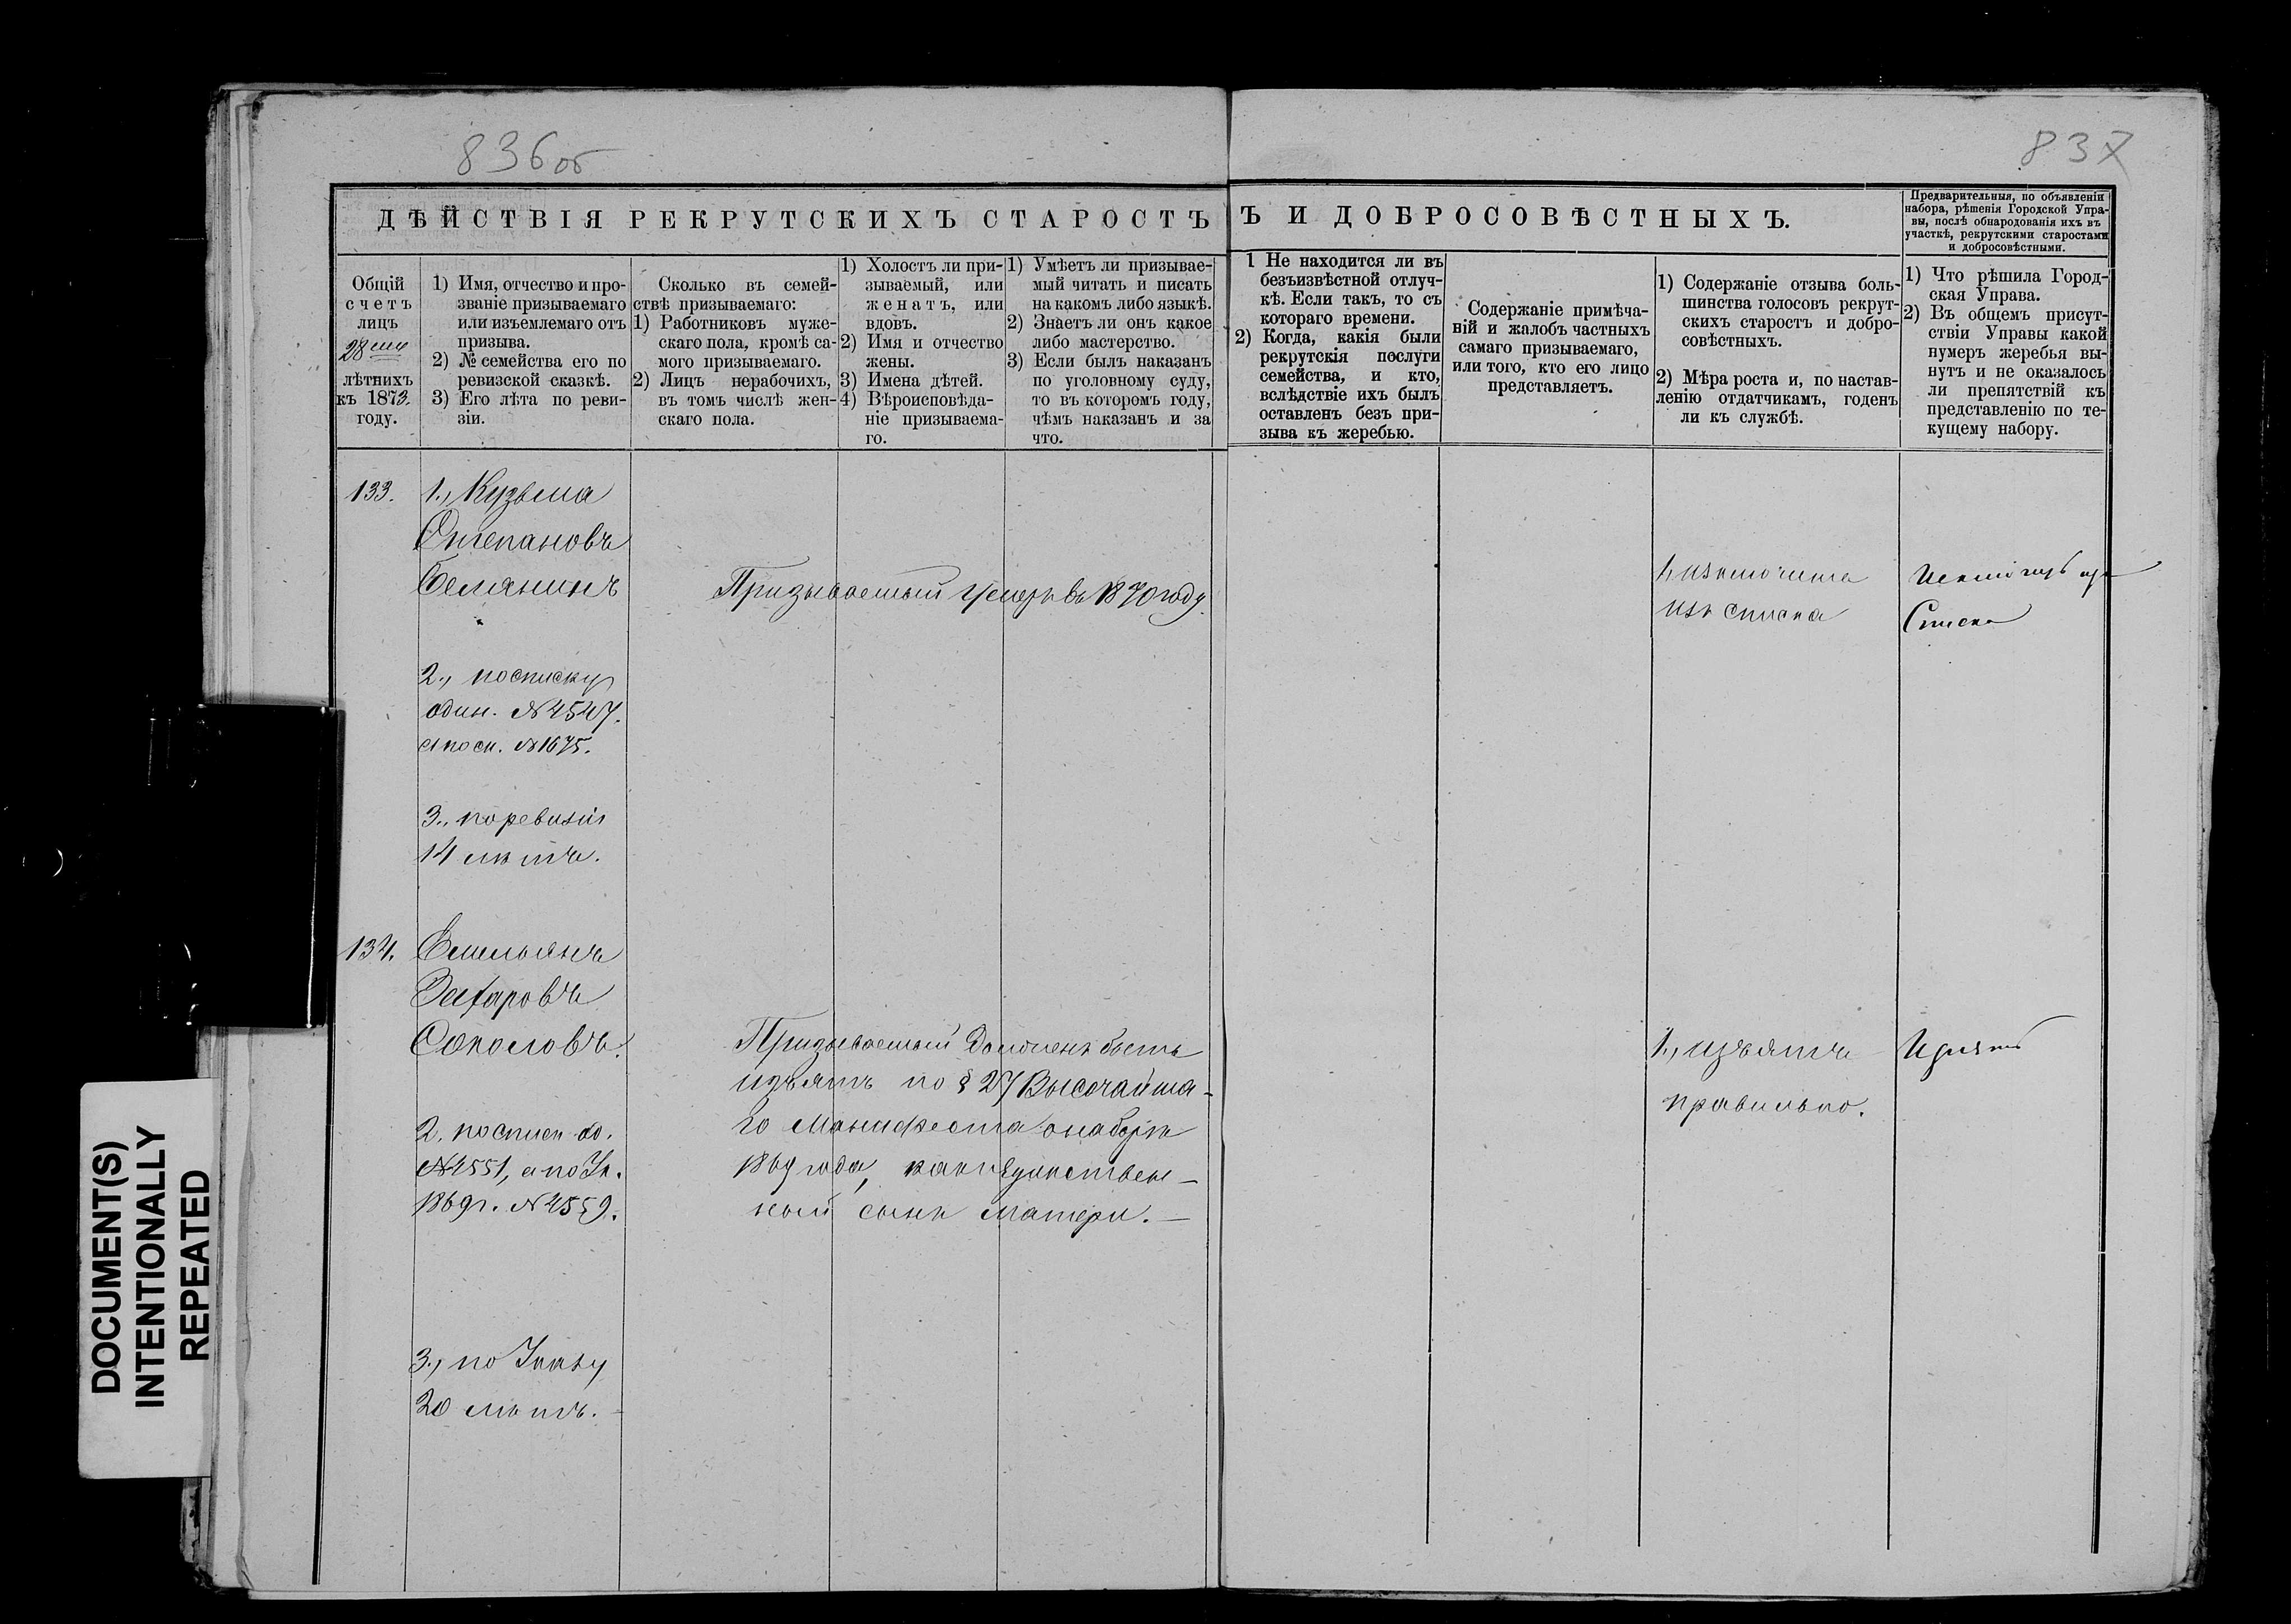 836об
837
ДѢЙСТВІЯ РЕКРУТСКИХЪ СТАРОСТЪ
Ъ И ДОБРОСОВѢСТНЫХЪ.
Предварительныя, по объявленіи
набора, рѣшенія Городской Упра-
вы, послѣ обнародованія ихъ въ
участкѣ, рекрутскими старостами
и добросовѣстными.
Общій
счетъ
лицъ
28ми
лѣтнихъ
къ 1873.
году.
1) Имя, отчество и про-
званіе призываемаго
или изъемлемаго отъ
призыва.
2) № семейства его по
ревизской сказкѣ.
3) Его лѣта по реви-
зіи.
Сколько въ семей-
ствѣ призываемаго:
1) Работниковъ муже-
скаго пола, кромѣ са-
мого призываемаго.
2) Лицъ нерабочихъ,
въ томъ числѣ жен-
скаго пола.
1) Холостъ ли при-
зываемый, или
женатъ, или
вдовъ.
2) Имя и отчество
жены.
3) Имена дѣтей.
4) Вѣроисповѣда-
ніе призываема-
го.
1) Умѣетъ ли призывае-
мый читать и писать
на какомъ либо языкѣ.
2) Знаетъ ли онъ какое
либо мастерство.
3) Если былъ наказанъ
по уголовному суду,
то въ которомъ году,
чѣмъ наказанъ и за
что.
1 Не находится ли въ
безъизвѣстной отлуч-
кѣ. Если такъ, то съ
котораго времени.
2) Когда, какія были
рекрутскія послуги
семейства, и кто,
вслѣдствіе ихъ былъ
оставленъ безъ при-
зыва къ жеребью.
Содержаніе примѣча-
ній и жалобъ частныхъ
самаго призываемаго,
или того, кто его лицо
представляетъ.
1) Содержаніе отзыва боль-
шинства голосовъ рекрут-
скихъ старостъ и добро-
совѣстныхъ.
2) Мѣра роста и, по настав-
ленію отдатчикамъ, годенъ
ли къ службѣ.
1) Что рѣшила Город-
ская Управа.
2) Въ общемъ присут-
ствіи Управы какой
нумеръ жеребья вы-
нутъ и не оказалось
ли препятствій къ
представленію по те-
кущему набору.
133.
1., Кузьма
Степановъ
Белянинъ
2., по списку
один. №4547.
а по сп. №1675.
3., по ревизіи
14 лѣтъ.
Призываемый умеръ въ 1870 году.
1, изключить
изъ списка
Исключить из
Списка
134.
Емельянъ
Захаровъ
Соколовъ.
2. по списк. од.
№4551, а по Ук.
1869г. №4559.
3., по Указу
20 лѣтъ.
Призываемый долженъ быть
изъятъ по § 27 Высочайша-
го Манифеста о наборѣ
1869 года, какъ единствен-
ный сынъ матери.
1., изъятъ
правильно.
Изъять
DOCUMENT(S)
INTENTIONALLY
REPEATED